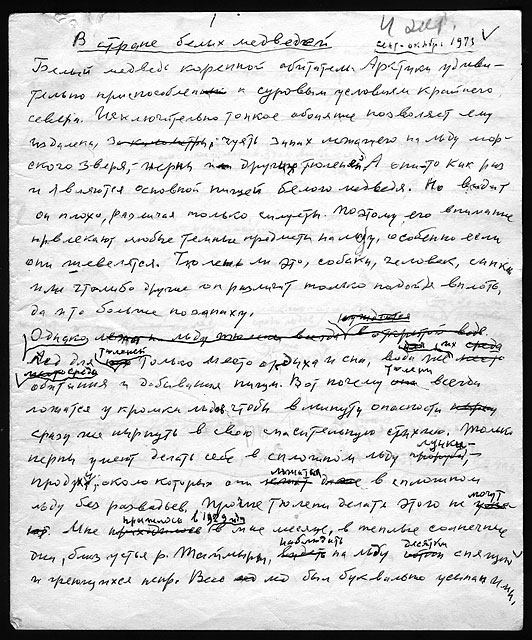 1
4 экз.
В стране белых медведей
сент-октябрь 1973
Белый медведь коренной обитатель Арктики удиви-
тельно приспособлен к суровым условиям крайнего
севера. Исключительно тонкое обоняние позволяет ему
издалека, за километры, чуять запах лежащего на льду мор-
ского зверя, - нерпы или других тюленей. А они-то как раз
и являются основной пищей белого медведя. Но видит
он плохо, различая только силуэты. Поэтому его внимание
привлекают любые темные предметы на льду, особенно если
они шевелятся. Тюлень ли это, собака, человек, санки
или что либо другое он различит только подойдя вплоть,
да и то больше по запаху.
нуждается
Однако лежа на льду тюлени всегда в открытой воде.
Лед для тюленей только место отдыха и сна, вода же их среда
обитания и добывания пищи. Вот почему тюлени всегда
ложатся у кромки льдов чтобы в минуту опасности
сразу же нырнуть в свою спасительную стихию. Только
нерпы умеют делать себе в сплошном льду лунки-
продухи, около которых они лежат в сплошном
льду без разводьев, прочие тюлени делать этого не могут
Мне пришлось в 1929 году в мае месяце, в теплые солнечные
дни, близ устья р. Таймыры, наблюдать на льду десятки спящих
и греющихся нерп. Весь лед был буквально усыпан ими,